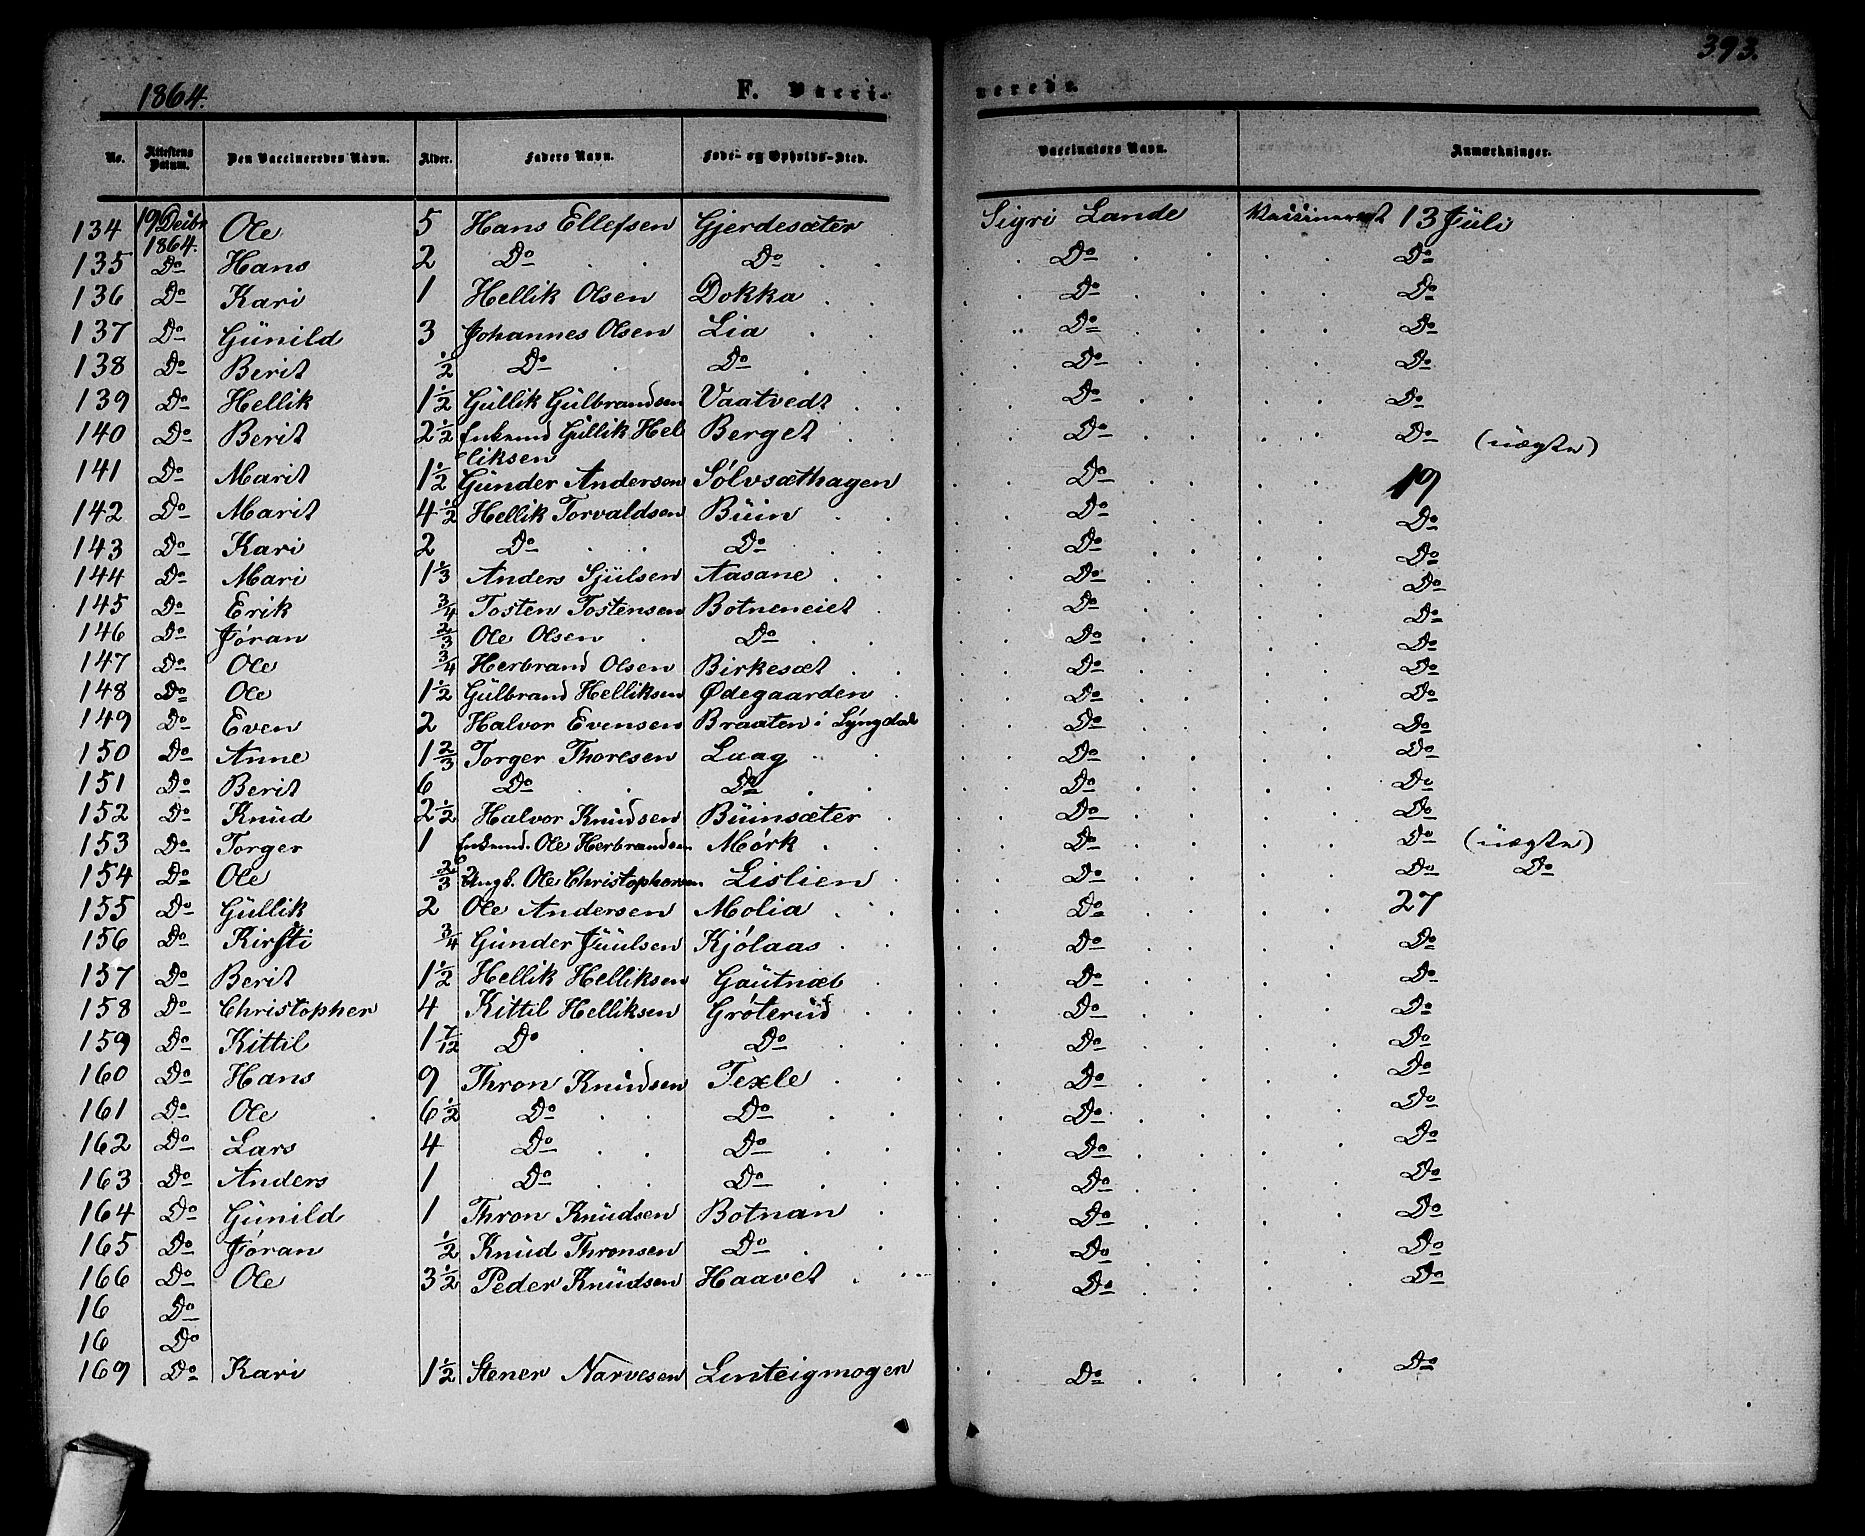 1864. F. Vacci- nerede. 393.
No. Attestens Datum. Den Vaccineredes Navn. Alder. Faders Navn. Føde- og Opholds-Sted. Vaccinators Navn. Anmærkninger.
134 19 Deibr 1864. Ole 5 Hans Ellefsen Gjerdesæter Sigri Lande 13 Jüli
135 Do Hans 2 Do Do Do Do
136 Do Kari 1 Hellik Olsen Dokka Do Do
137 Do Günild 3 Johannes Olsen Lia Do Do
138 Do Berit ½ Do Do Do Do
139 Do Hellik 1½ Güllik Gülbrandsen Vaatvedt Do Do
140 Do Berit 2½ Enkemd Güllik Hel Berget Do Do (üægte)
liksen
141 Do Marit 1½ Günder Andersen Sølvsæthagen Do 19
142 Do Marit 4½ Hellik Torvaldsen Büin Do Do
143 Do Kari 2 Do Do Do Do
144 Do Mari 1⅓ Anders Sjülsen Aasane Do Do
145 Do Erik ¾ Tosten Tostensen Botneneiet Do Do
146 Do Jøran ⅔ Ole Olsen Do Do Do
147 Do Ole ¾ Herbrand Olsen Birkesæt Do Do
148 Do Ole 1½ Gülbrand Helliksen Ødegaarden Do Do
149 Do Even 2 Halvor Evensen Braaten i Lyngdal Do Do
150 Do Anne 1⅔ Torger Thoresen Laag Do Do
151 Do Berit 6 Do Do Do Do
152 Do Knüd 2½ Halvor Knüdsen Büinsæter Do Do
153 Do Torger 1 Enkemd. Ole Herbrandsen Mørk Do Do (üægte)
154 Do Ole ⅔ Ungk. Ole Christophersen Lislien Do Do Do
155 Do Güllik 2 Ole Andersen Molia Do 27
156 Do Kirsti ¾ Günder Jüülsen Kjølaas Do Do
157 Do Berit 1½ Hellik Helliksen Gaütnæb Do Do
158 Do Christopher 4 Kittil Helliksen Grøterüd Do Do
159 Do Kittil 1 7/12 Do Do Do Do
160 Do Hans 9 Thron Knüdsen Texle Do Do
161 Do Ole 6½ Do Do Do Do
162 Do Lars 4 Do Do Do Do
163 Do Anders 1 Do Do Do Do
164 Do Günild 1 Thron Knüdsen Botnan Do Do
165 Do Jøran ½ Knüd Thronsen Do Do Do
166 Do Ole 3½ Peder Knüdsen Haavet Do Do
16 Do
16 Do
169 Do Kari 1½ Stener Narvesen Linteigmogen Do Do